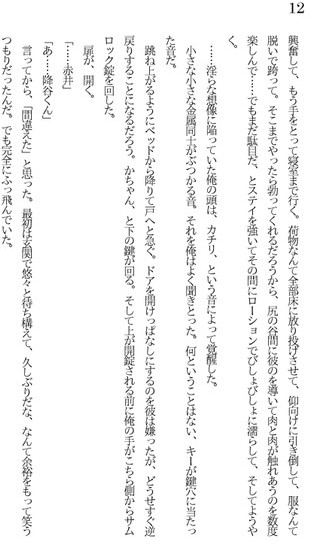 12
興奮して、もう手をとって寝室まで行く。荷物なんて全部床に放り投げさせて、仰向けに引き倒して、服なんて
脱いで跨って。そこまでやったら勃ってくれるだろうから、尻の谷間に彼のを導いて肉と肉が触れあうのを数度
楽しんで……でもまだ駄目だ、とステイを強いてその間にローションでびしょびしょに濡らして、そしてようや
く。
……淫らな想像に陥っていた俺の頭は、カチリ、という音によって覚醒した。
小さな小さな金属同士がぶつかる音。それを俺はよく聞きとった。何ということはない、キーが鍵穴に当たっ
た音だ。
跳ね上がるようにベッドから降りて戸へと急ぐ。ドアを開けっぱなしにするのを彼は嫌ったが、どうせすぐ逆
戻りすることになるだろう。かちゃん、と下の鍵が回る。そして上が開錠される前に俺の手がこちら側からサム
ロック錠を回した。
扉が、開く。
「……赤井」
「あ……降谷くん」
言ってから、「間違えた」と思った。最初は玄関で悠々と待ち構えて、久しぶりだな、なんて余裕をもって笑う
つもりだったんだ。でも完全にふっ飛んでいた。